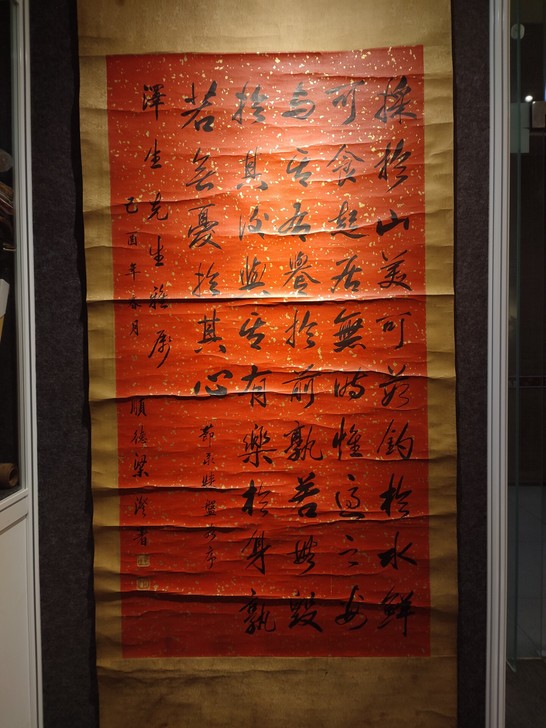 採於山美可茹釣於水鮮
可食起居無時惟適之安
與其有譽於前孰若無毀
於其後與其有樂於身孰
若無憂於其心
節盤谷序
澤生先生雅屬
己酉年月 順德梁書